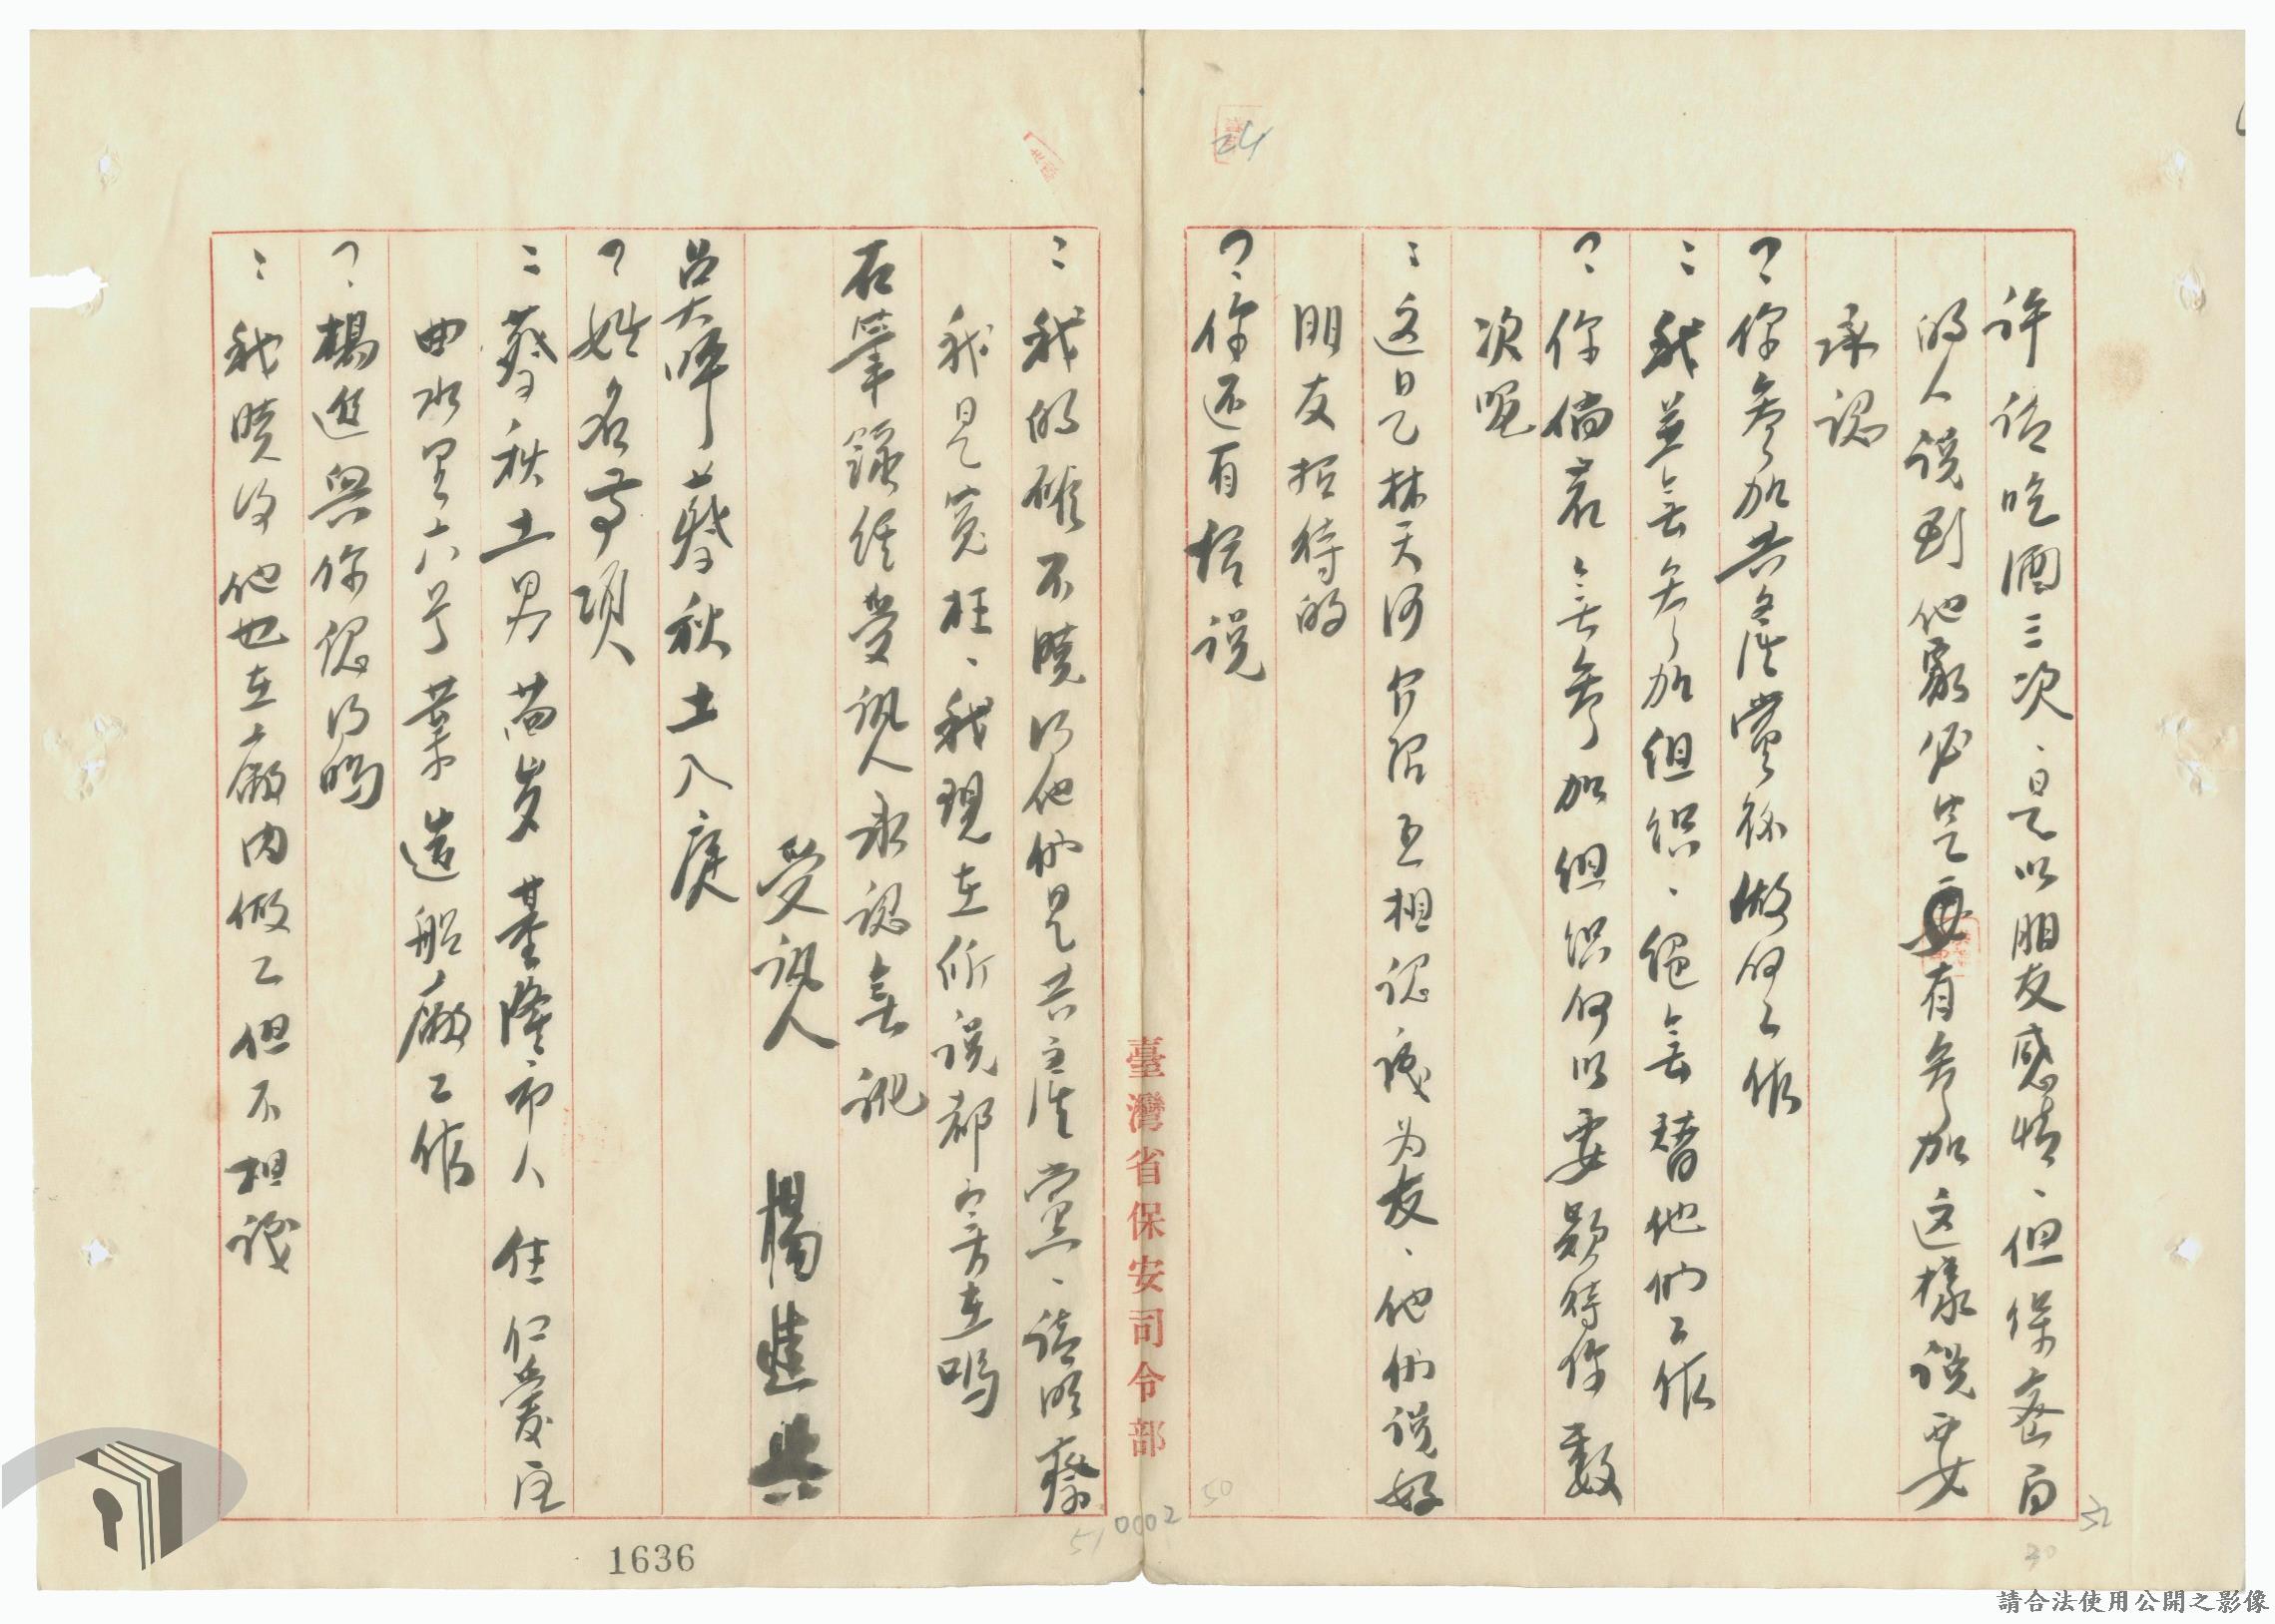 許請吃酒三次、是以朋友感情、但保密局
的人說到他家必定要有参加这樣說要
承認
？、你参加共產黨後做何工作
：我並無参加组织、絕無替他們工作
？：你倘若無参加组织何以要款待你數
次呢
：这是林天河介绍互相認識为友、他們說好
朋友招待的
？、你还有話說
：我的確不曉得他們是共產黨、請明察
我是冤枉、我現在所說都實在嗎
右筆錄経受訊人承認無訛
受訊人 楊進興
呂大 蔡秋土入庭
？姓名等項
：蔡秋土男 岁基隆市人住仁愛区
曲水里六号業造船廠工作
？、楊進興你認得嗎
：我曉得他也在廠内做工但不相識
臺灣省保安司令部
24
50
51
0002
52
30
1636
請合法使用公開之影像